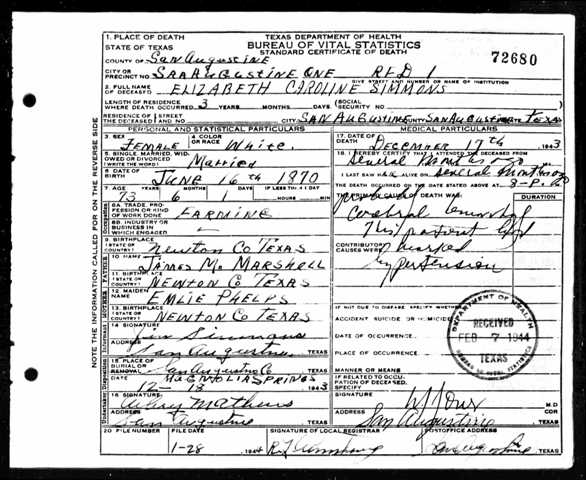 TEXAS DEPARTMENT OF HEALTH
BUREAU OF VITAL STATISTICS
STANDARD CERTIFICATE OF DEATH
72680
1. PLACE OF DEATH
STATE OF TEXAS
COUNTY OF San Augustine
CITY OR PRECINCT NO. San Augustine One RFD 1
GIVE STREET AND NUMBER OR NAME OF INSTITUTION
2. FULL NAME OF DECEASED Elizabeth Caroline Simmons
LENGTH OF RESIDENCE WHERE DEATH OCCURRED 3 YEARS MONTHS DAYS (SOCIAL SECURITY NO.
RESIDENCE OF THE DECEASED STREET AND NO. CITY San Augustine COUNTY San Augustine Texas
PERSONAL AND STATISTICAL PARTICULARS
3. SEX Female
4. COLOR OR RACE White
5. SINGLE, MARRIED, WIDOWED OR DIVORCED Married
6. DATE OF BIRTH June 16th 1870
7. AGE YEARS MONTHS DAYS IF LESS THAN 1 DAY
73 6 1 HOURS MIN
8A. TRADE, PROFESSION OR KIND OF WORK DONE Farming
8B. INDUSTRY OR BUSINESS IN WHICH ENGAGED
9. BIRTHPLACE (STATE OR COUNTRY) Newton Co Texas
FATHER
10. NAME James M. Marshall
11. BIRTHPLACE (STATE OR COUNTRY) Newton Co Texas
MOTHER
12. MAIDEN NAME Emlie Phelps
13. BIRTHPLACE (STATE OR COUNTRY) Newton Co Texas
Informant
14. SIGNATURE Simmons
ADDRESS San Augustine TEXAS
15. PLACE OF BURIAL OR REMOVAL San Augustine Co
Magnolia Springs TEXAS
DATE 12 18 1943
Undertaker
16. SIGNATURE Mathews
ADDRESS San Augustine TEXAS
MEDICAL PARTICULARS
17. DATE OF DEATH December 17th 1943
18. I HEREBY CERTIFY THAT I ATTENDED THE DECEASED FROM
several months ago
I LAST SAW H ALIVE ON several months ago
THE DEATH OCCURRED ON THE DATE STATED ABOVE AT 8- P. M.
CAUSE OF DEATH WAS: DURATION
Cerebral
This patient had
CONTRIBUTORY CAUSES WERE marked
hypertension
19. IF NOT DUE TO DISEASE, SPECIFY WHETHER
ACCIDENT SUICIDE OR HOMICIDE
DATE OF OCCURRENCE
PLACE OF OCCURRENCE
MANNER OR MEANS
IF RELATED TO OCCUPATION OF DECEASED, SPECIFY
SIGNATURE M.D.
ADDRESS San Augustine TEXAS
20. FILE NUMBER FILE DATE SIGNATURE OF LOCAL REGISTRAR POSTOFFICE ADDRESS
1-28 1944 TEXAS
DEPARTMENT OF HEALTH
RECEIVED
FEB 7 1944
TEXAS
BUREAU OF VITAL STATISTICS
NOTE THE INFORMATION CALLED FOR ON THE REVERSE SIDE